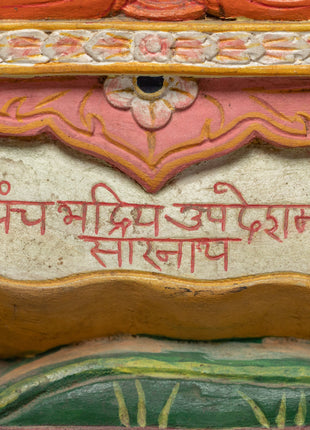 पंच भद्रिय उपदेशम
सारनाथ